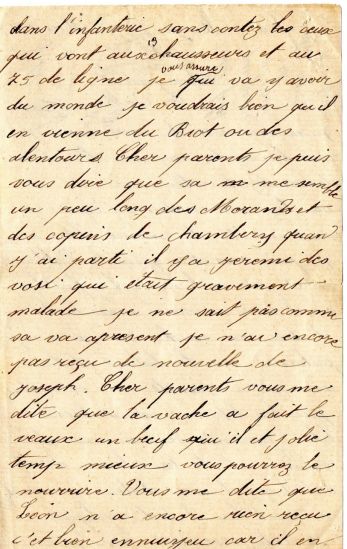 dans l'infanterie sans contéz les ceux
qui vont aux 13 chausseurs et au
75 de ligne je vous assure qui va y avoir
du monde je voudrais bien qu'il
en vienne du Biot ou des
alentours. Cher parents je puis
vous dire que sa me semble
un peu long des Morands et
des copins de chambery quan
j'ai parti il y a jeremi des
vosi qui était gravement
malade je ne sait pas comme
sa va apresent je n'ai encore
pas reçu de nouvelle de
joseph. Cher parents vous me
dité que la vache a fait le
veaux un bœuf qui il et jolie
temp mieux vous pourrez le
nourrire. Vous me dite que
Léon n'a encore rien reçu
c'et bien ennuyeu car il en